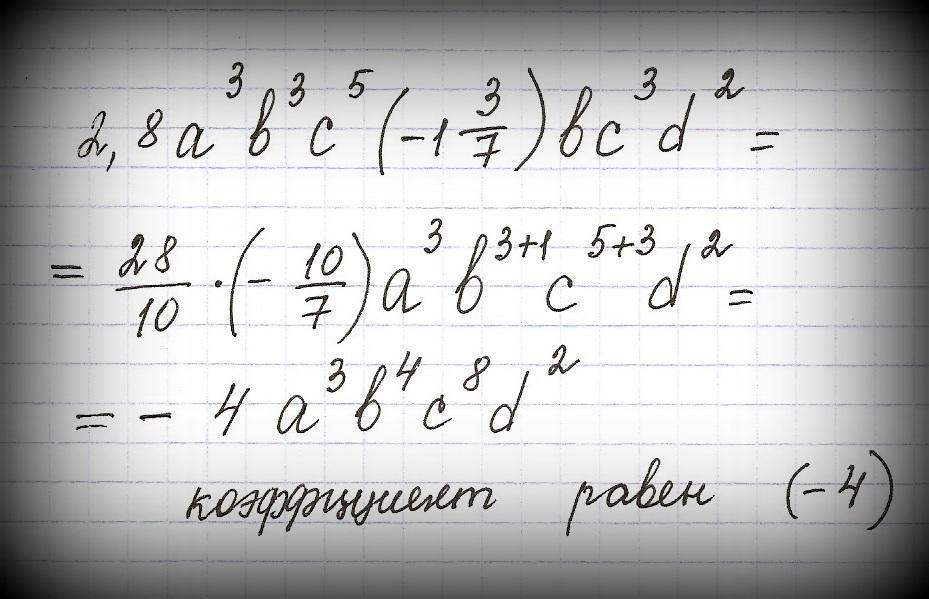 2,8a³b³c⁵(-1 3/7)bc³d² =
= 28/10 · (- 10/7)a³b³⁺¹c⁵⁺³d² =
= - 4a³b⁴c⁸d²
коэффициент равен (-4)